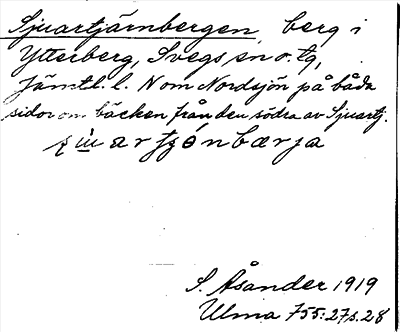 Sjuartjärnbergen, berg i
Ytterberg, Svegs sn o. tg,
Jämtl. l. N om Nordsjön på båda
sidor om bäcken från den södra av Sjuartj.
S. Åsander 1919
Ulma 755:27 s. 28